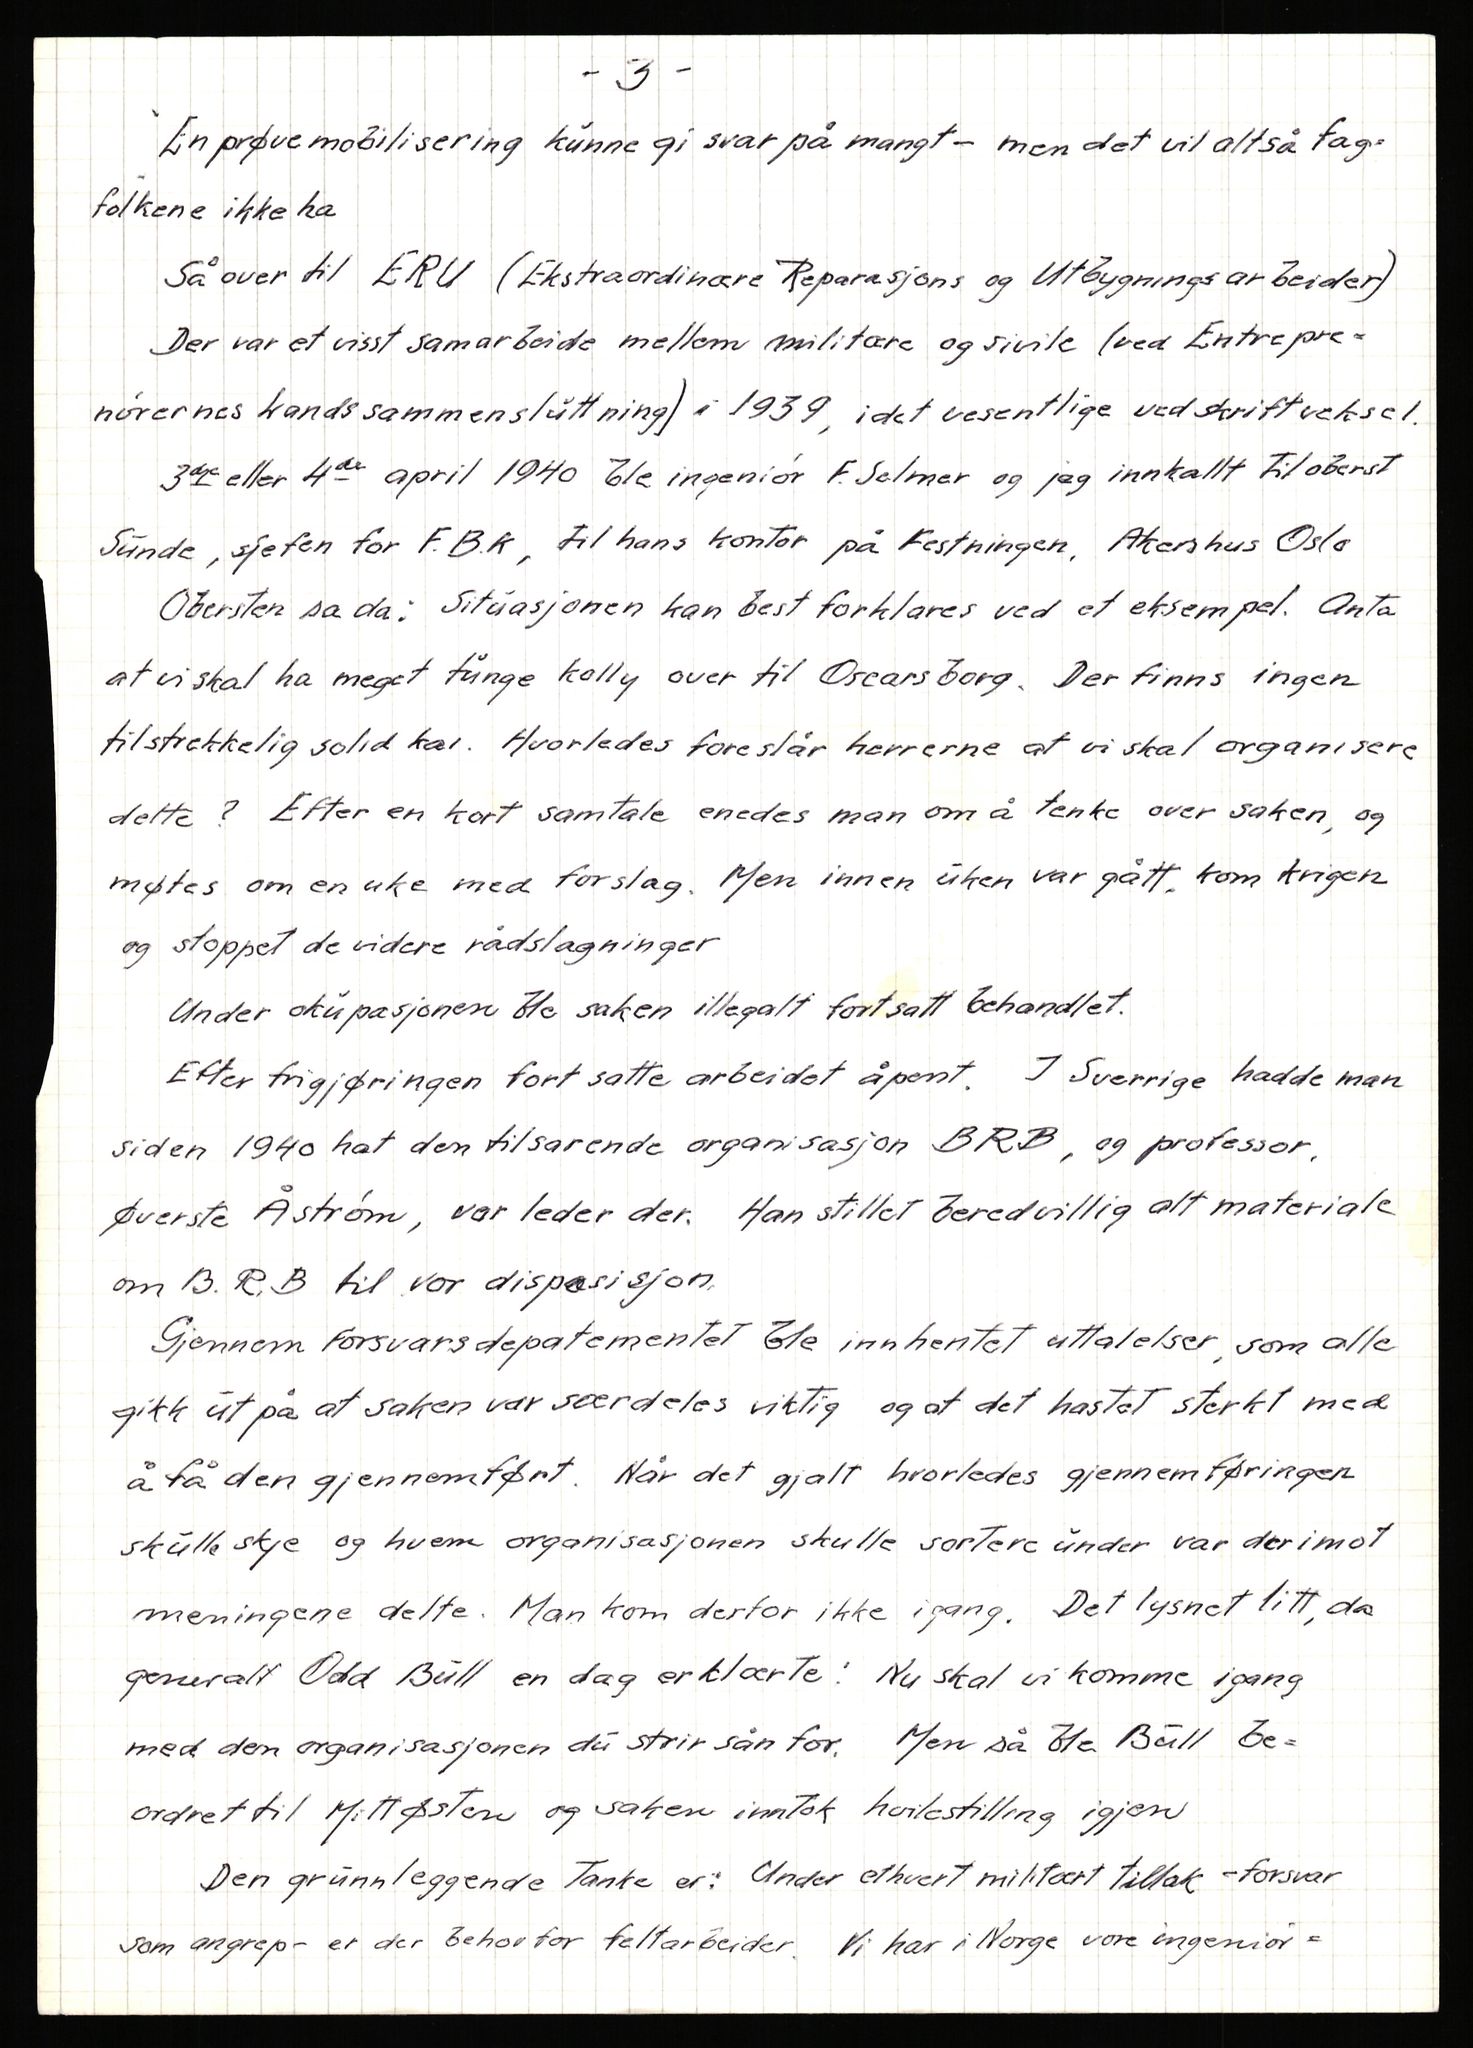 - 3 -
En prøvemobilisering kunne gi svar på mangt - men det vil altså fag=
folkene ikke ha
Så over til ERU (Ekstraordinære Reparasjons og Utbygningsarbeider)
Der var et visst samarbeide mellem militære og sivile (ved Entrepre=
nórernes Landssammensluttning) i 1939, i det vesentlige ved skriftveksel.
3dje eller 4de april 1940 ble ingeniór F. Selmer og jeg innkallt til oberst
Sunde, sjefen for F.B.K, til hans kontor på Festningen, Akershus Oslo
Obersten sa da: Situasjonen kan best forklares ved et eksempel. Anta
at vi skal ha meget tunge kolly over til Oscarsborg. Der finns ingen
tilstrekkelig solid kai. Hvorledes foreslår herrerne at vi skal organisere
dette? Efter en kort samtale enedes man om å tenke over saken, og
møtes om en uke med forslag. Men innen uken var gått, kom krigen
og stoppet de videre rådslagninger
Under okupasjonen ble saken illegalt fortsatt behandlet.
Efter frigjøringen fortsatte arbeidet åpent. I Sverrige hadde man
siden 1940 hat den tilsarende organisasjon BRB, og professor,
øverste Åstróm, var leder der. Han stillet beredvillig alt materiale
om B.R.B til vor disposisjon.
Gjennem Forsvarsdepatementet ble innhentet uttalelser, som alle
gikk ut på at saken var særdeles viktig og at det hastet sterkt med
å få den gjennemført. Når det gjalt hvorledes gjennemføringen
skulle skje og hvem organisasjonen skulle sortere under var derimot
meningene delte. Man kom derfor ikke igang. Det lysnet litt, da
generalt Odd Bull en dag erklærte: Nu skal vi komme igang
med den organisasjonen du strir sån for. Men så ble Bull be=
ordret til Mittøsten og saken inntok hvilestilling igjen
Den grunnleggende tanke er: Under ethvert militært tiltak - forsvar
som angrep - er der behov for feltarbeider. Vi har i Norge vore ingeniór=